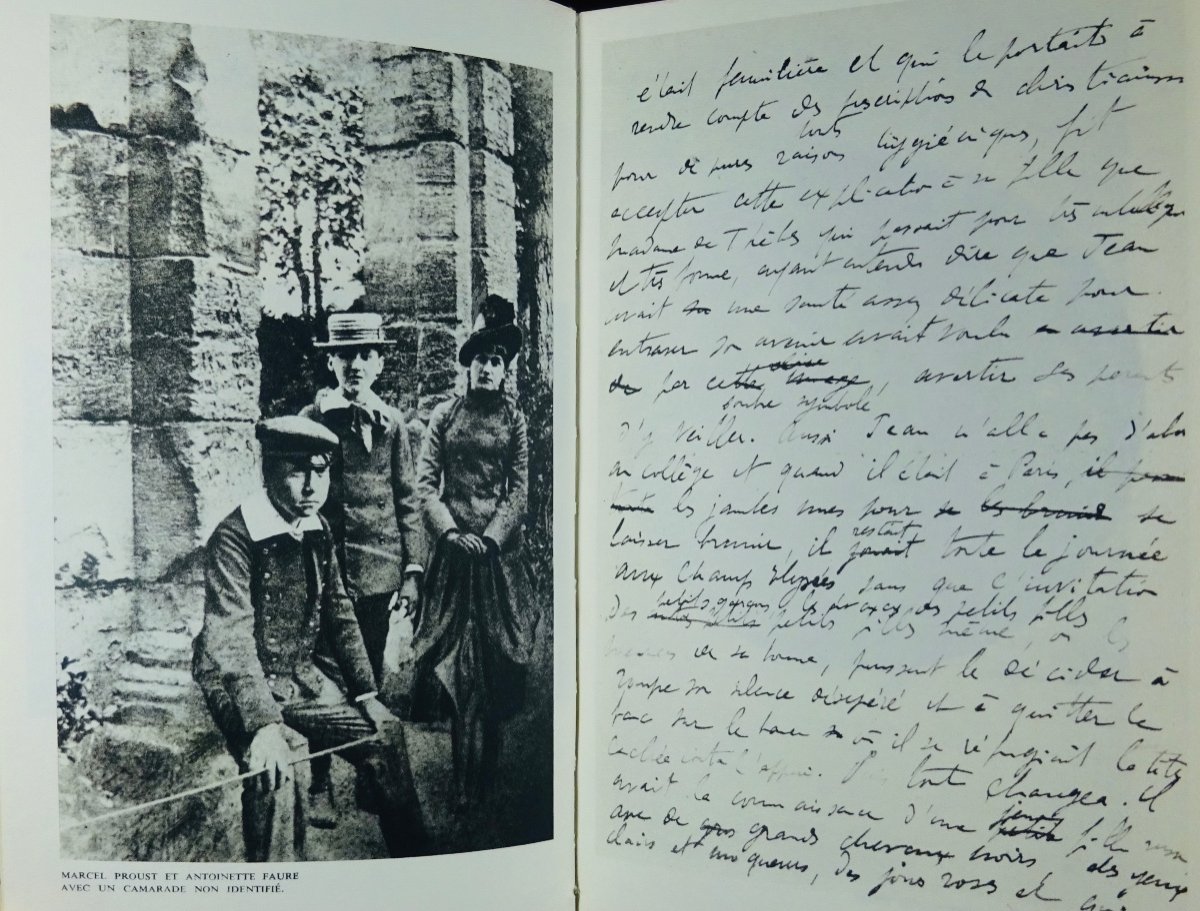 MARCEL PROUST ET ANTOINETTE FAURE
AVEC UN CAMARADE NON IDENTIFIÉ.
était familière et qui le portait à
rendre compte des prescriptions du christianisme
pour de pures raisons hygiéniques, fit
accepter cette explication à sa fille que
madame de Thèbes qui passait pour très
et très bonne, ayant entendu dire que Jean
avait une santé assez délicate pour
entraver son avenir avait voulu avertir
de par cette image, avertir ses parents
sombre symbole
d'y veiller. Aussi Jean n'alla pas d'abord
au collège et quand il était à Paris, il
les jambes nues pour se les brunir se
laisser brunir, il restait toute le journée
aux Champs Elysées sans que l'invitation
des petits garçons, des petites filles
petites filles même,
bonne, pussent le décider à
rompre son silence désespéré et à quitter le
banc sur le où il se réfugiait la tête
cachée contre l'appui. tout changea. Il
avait la connaissance d'une jeune petite fille russe
avec de grands cheveux noirs des yeux
clairs et moqueurs, des joues roses et